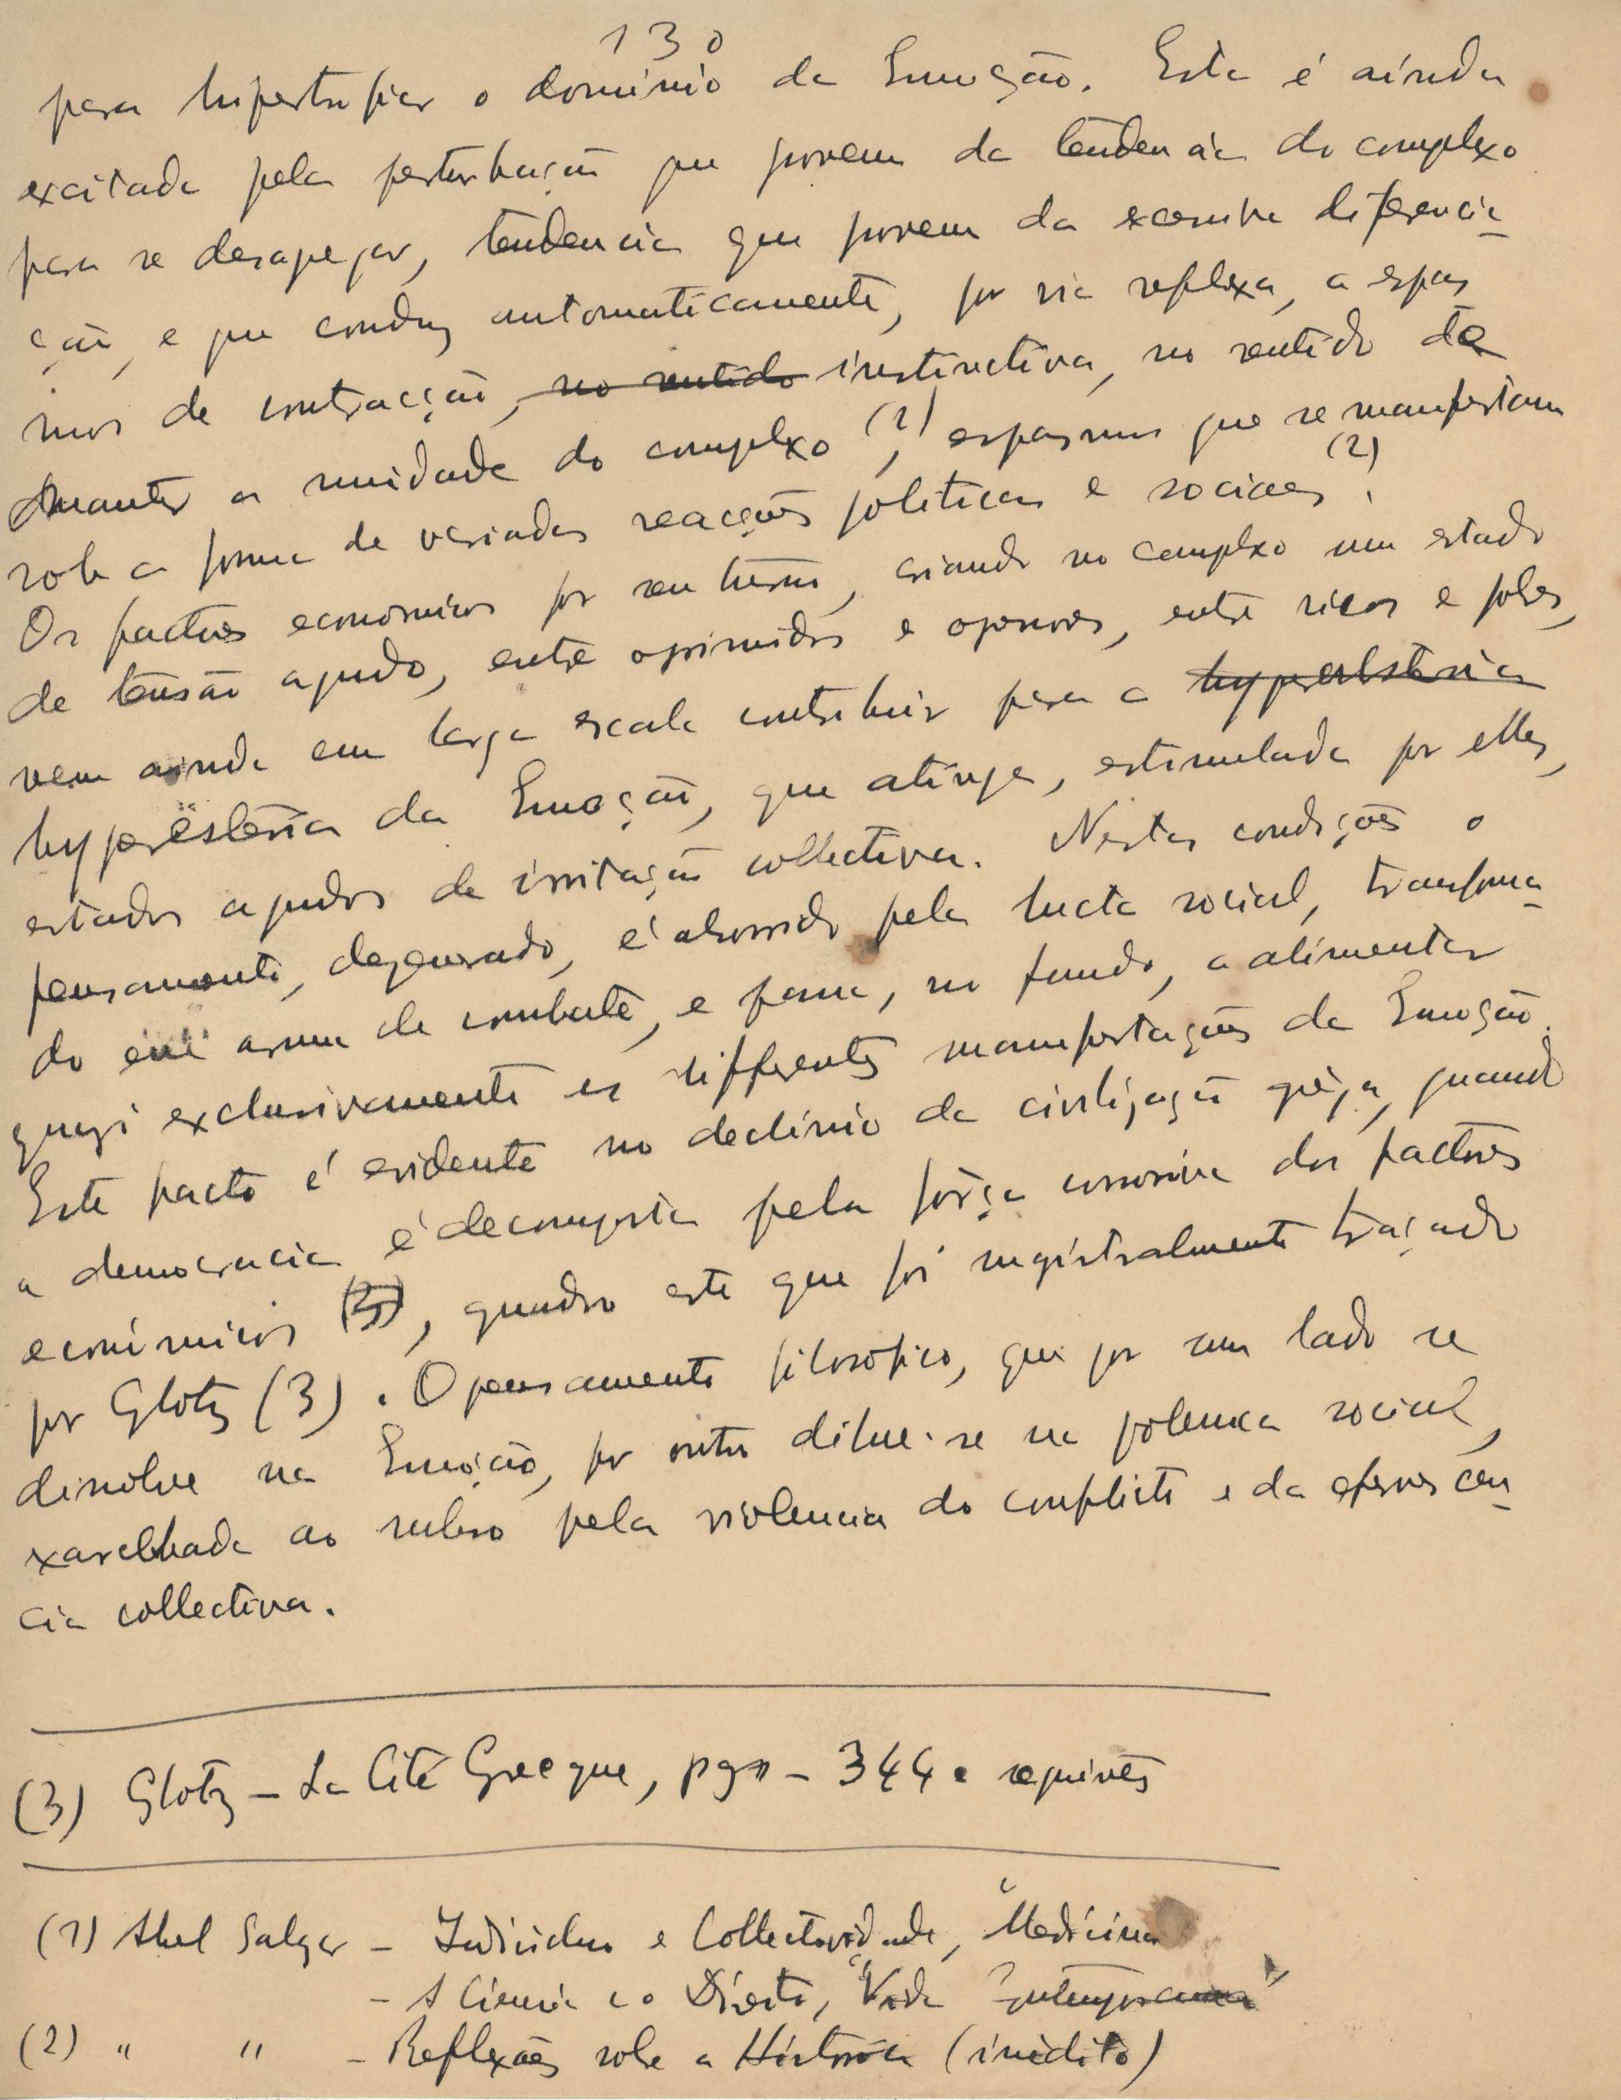 130
para hipertrofiar o dominio da Emoção. Esta é ainda
excitada pela perturbação que provem da tendencia do complexo
para se desapegar, tendencia que provem da excessiva diferencia-
ção, e que conduz automaticamente, por via reflexa, a espas
mos de contracção, no sentido instinctiva, no sentido de
manter a unidade do complexo (1), espasmos que se manifestam
sob a forma de variadas reacções politicas e sociaes (2).
Os factores economicos por seu turno, criando no complexo um estado
de tensão agudo, entre oprimidos e opressores, entre ricos e pobres,
vem ainda em larga escala contribuir para a
hyperestesia da Emoção, que atinge, estimulada por elles,
estados agudos de irritação collectiva. Nestas condições o
pensamento, degenerado, é absorvido pela lucta social, transforma-
do em arma de combate, e passa, no fundo, a alimentar
quasi exclusivamente as differentes manifestações da Emoção.
Este facto é evidente no declinio da civilização grega, quando
a democracia é decomposta pela força corrosiva dos factores
económicos (3), quadro este que foi magistralmente traçado
por Glotz (3). O pensamento filosofico, que por um lado se
dissolve na Emoção, por outro dilue-se na polemica social,
ao rubro pela violencia do conflicto e da efervescen-
cia collectiva.
(3) Glotz - La Cité Grecque, pgs - 344 e seguintes
(1) Abel Salazar - Individuo e Collectividade, "Medicina"
- A Ciencia e o Direito, "Vida Contemporanea"
(2) " " - Reflexões sobre a História (inédito)